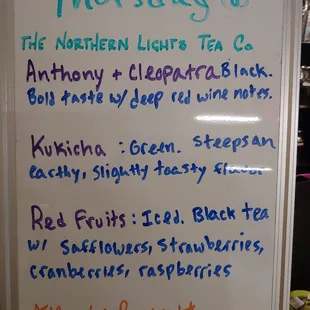 Thursday
THE NORTHERN LIGHTS TEA Co
Anthony + Cleopatra Black.
Bold taste w/ deep red wine notes.
Kukicha : Green. Steeps an
earthy, slightly toasty flavor
Red Fruits : Iced. Black tea
w/ Safflowers, Strawberries,
cranberries, raspberries